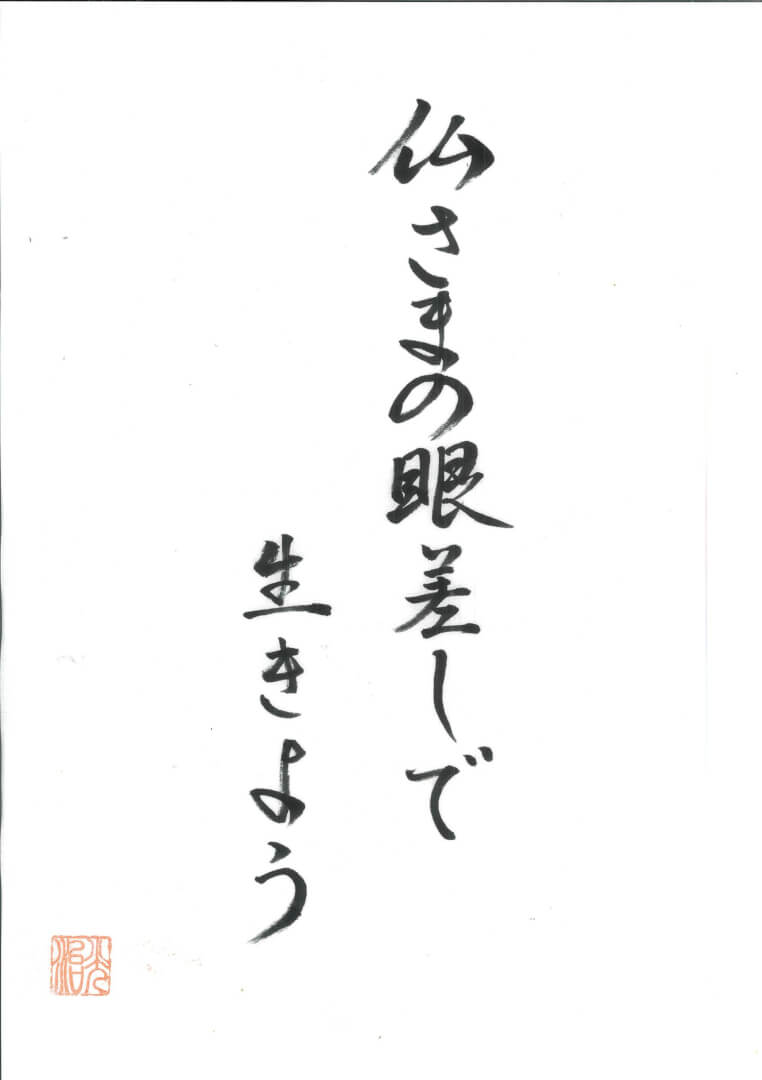 仏さまの眼差しで
生きよう